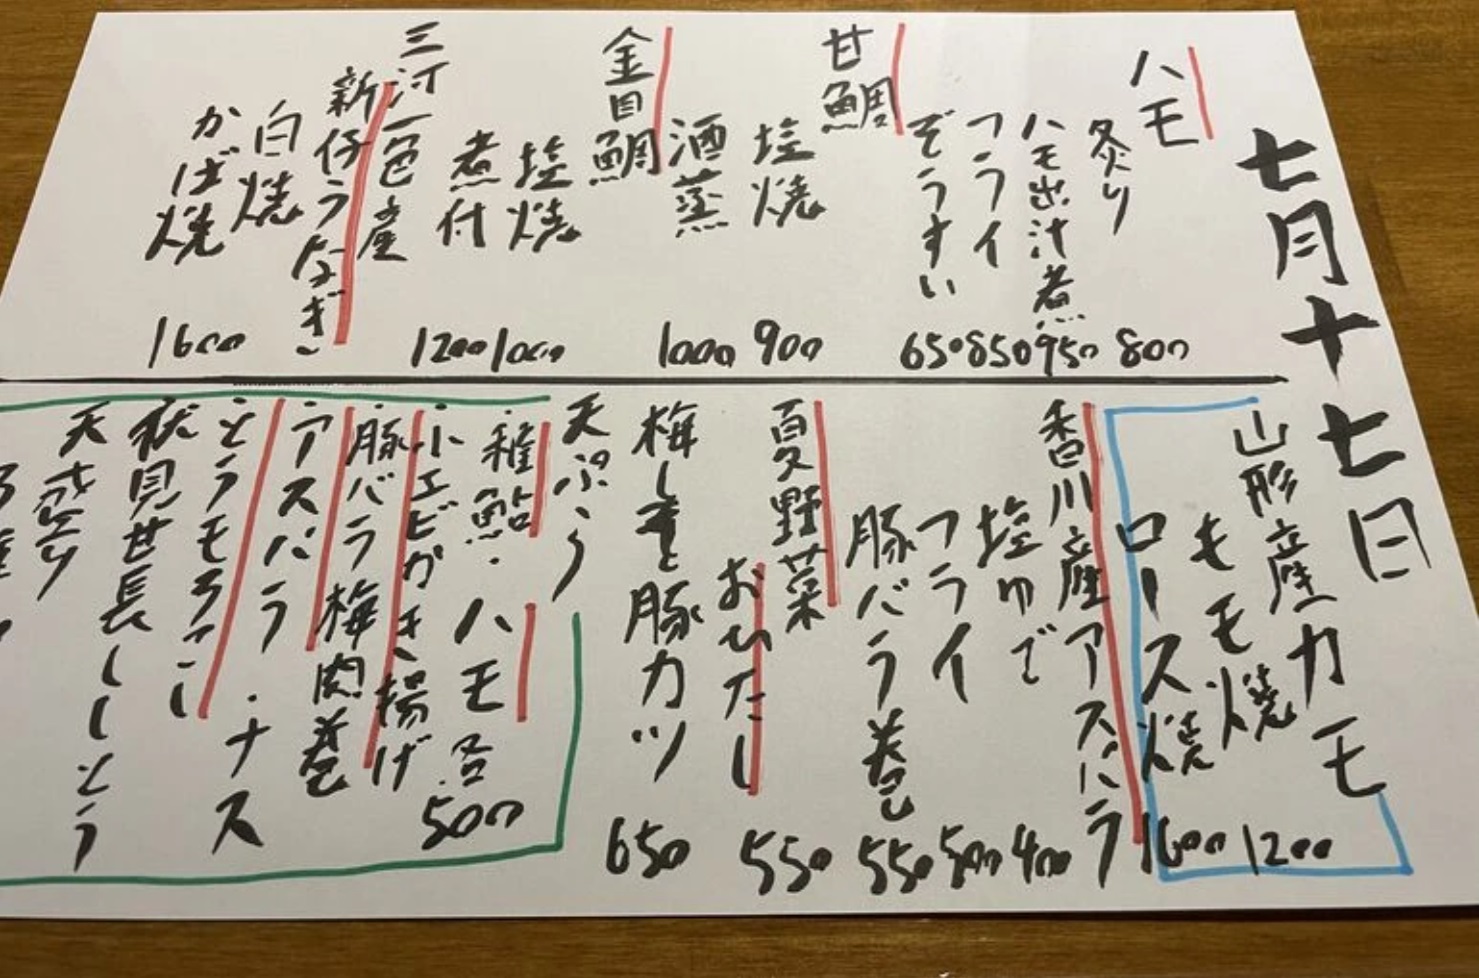 七月十七日
ハモ
炙り 800
ハモ出汁煮 950
フライ 850
ぞうすい 650
甘鯛
塩焼 900
酒蒸 1000
金目鯛
塩焼 1000
煮付 1200
三河一色産
新仔うなぎ
白焼
かば焼 1600
山形産カモ
モモ焼 1200
ロース焼 1600
香川産アスパラ
塩ゆで 400
フライ 500
豚バラ巻 550
夏野菜
おひたし 550
梅しそ豚カツ 650
天ぷら
稚鮎・ハモ各500
小エビかき揚げ
豚バラ梅肉巻
アスパラ・ナス
とうもろこし
伏見甘長しし
天盛り